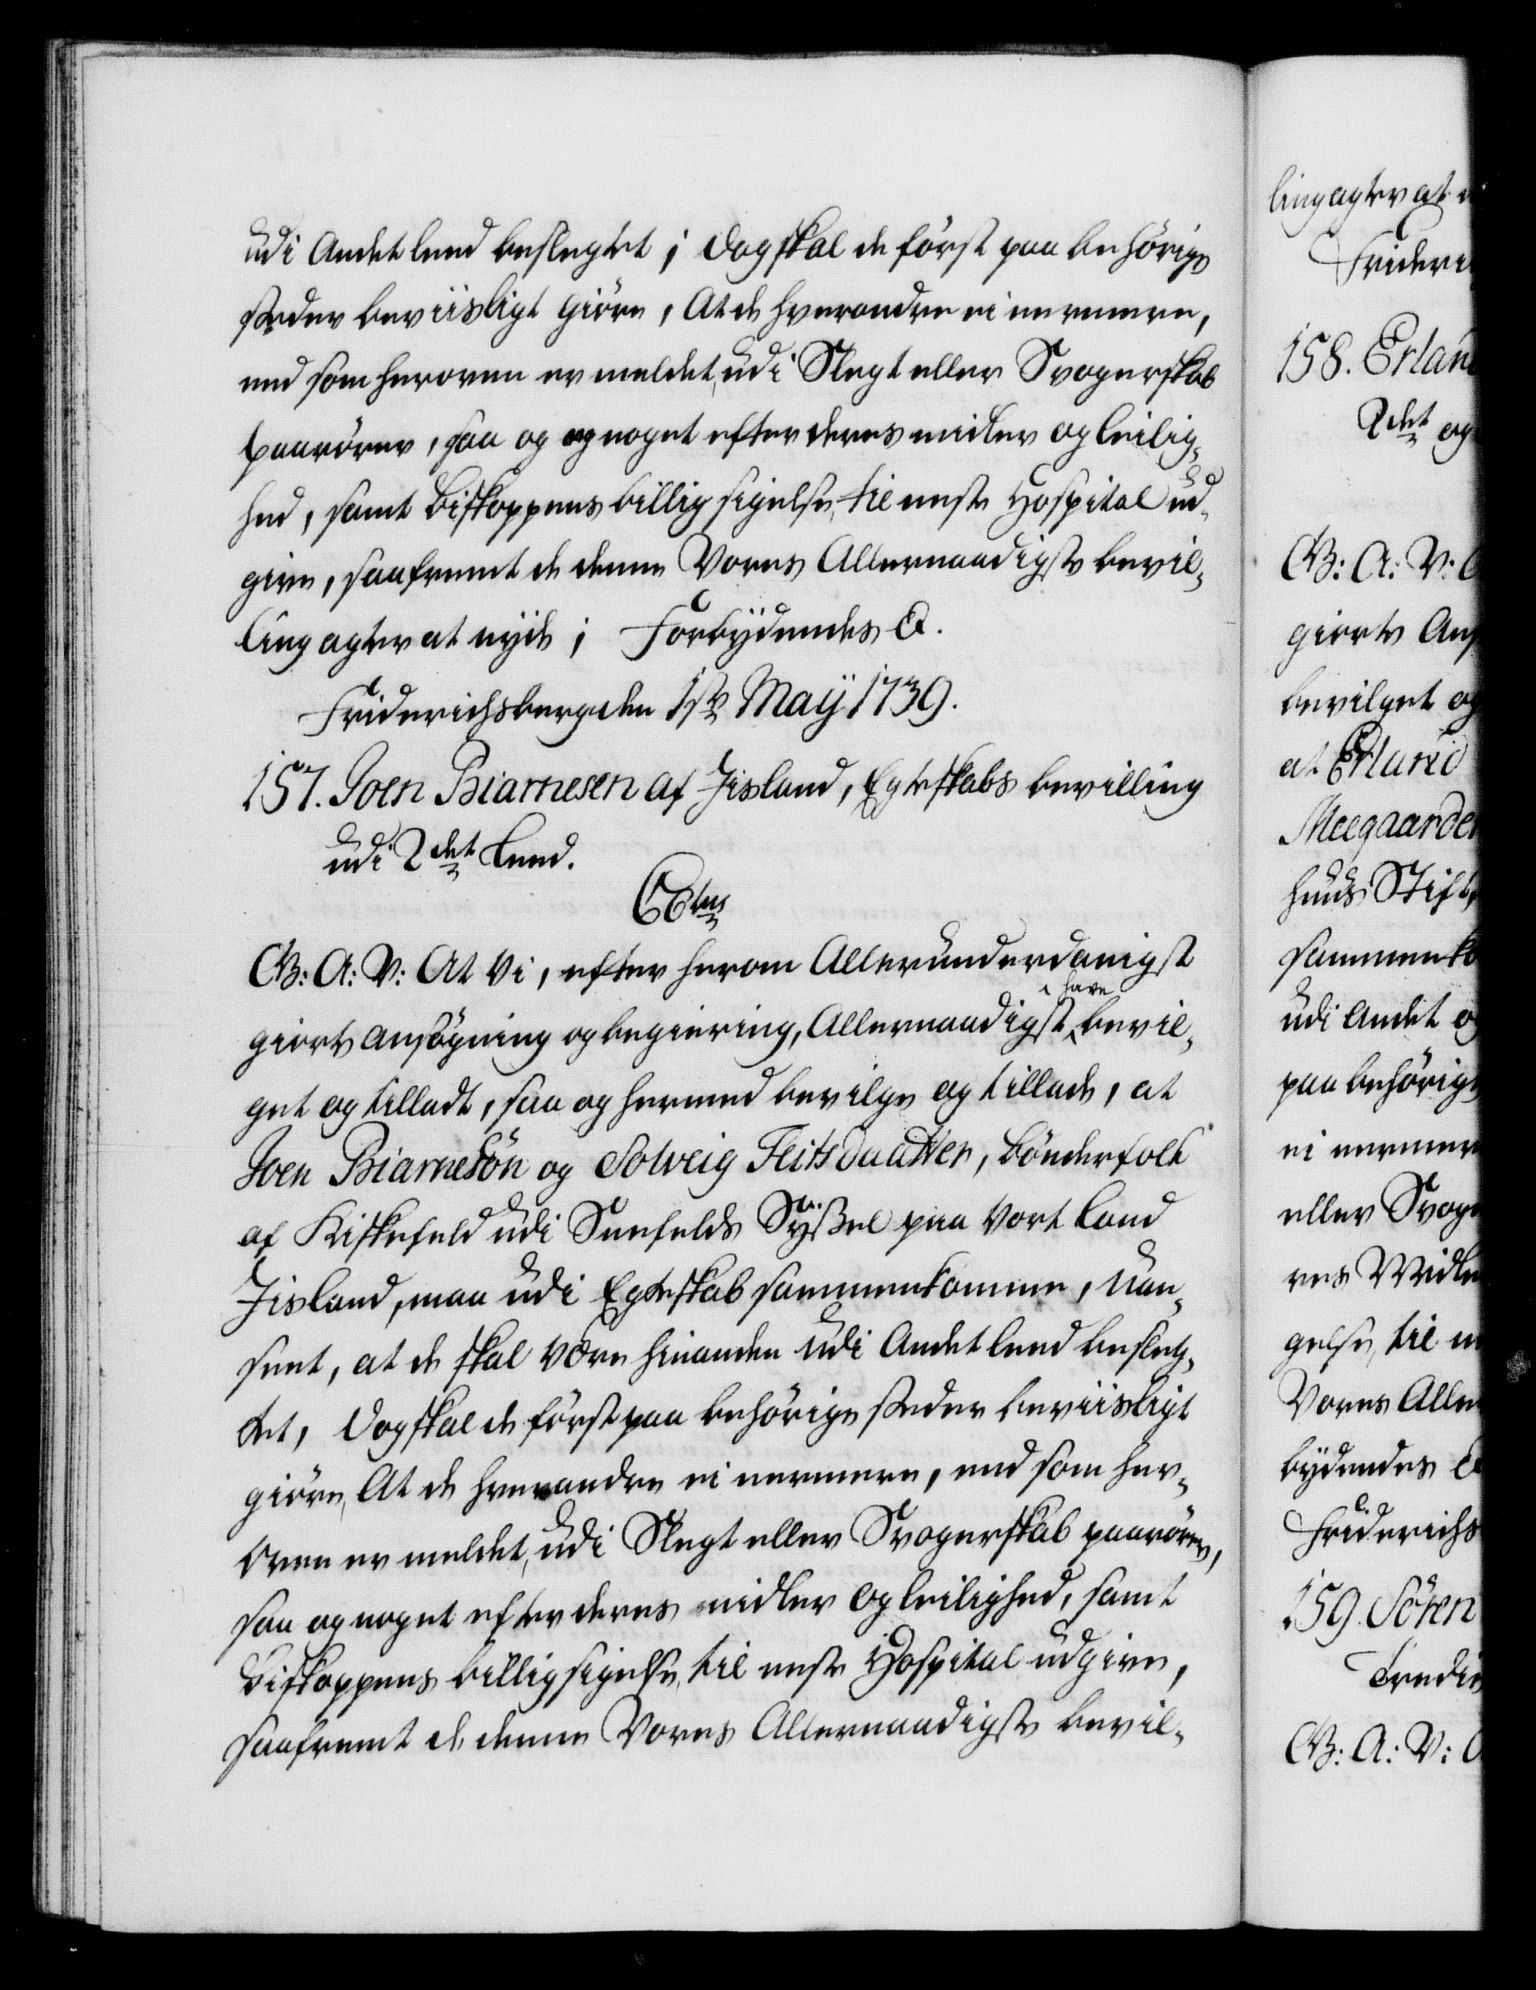 udi Andet leed beslegtet; dog skal de først paa behörige
stæder beviisligt giöre, At de hverandre ei nermere,
end som heroven er meldet, udi Slegt eller Svogerskab
paarörer, saa og og noget efter deres midler og leilig-
hed, samt Biskoppens billig sigelse, til neste Hospital ud-
give, saafremt de denne Vores Allernaadigste bevil-
ling agter at nyde; Forbydendes &.
Friderichsberg den 1ste Maij 1739.
157. Joen Biarnesen af Jisland, Egteskabs bevilling
udi 2det Leed.
C6tus
G: A: V: At Vi, efter herom Allerunderdanigst
giorte ansögning og begiering, Allernaadigst have bevil-
get og tilladt, saa og hermed bevilge og tillade, at
Joen Biarnesön og Solveig Teitsdaatter, bönderfolk
af Kiskefeld udi Snefelds Sÿssel paa Vort land
Jisland, maa udi Egteskab sammenkomme, Uan-
seet, at de skal være hinanden udi Andet leed besleg-
tet, dog skal de först paa behörige stæder beviisligt
giöre, At de hverandre ei nermere, end som her-
oven er meldet, udi Slegt eller Svogerskab paarörer,
saa og noget efter deres midler og leilighed, samt
Biskoppens billig sigelse, til neste Hospital udgive,
saafremt de denne Vores Allernaadigste bevil-
ling agter at
Frideri
158. Erlan
2det og
G: A: V:
giorte Ans
bevilget og
at Erland
Meegaarde
huus Stift,
sammenko
udi Andet
paa behörige
ei nermer
eller Svog
res Midle
gelse, til
Vores Alle
bydendes &
Friderichs
159. Sören
Tredie
G: A: V: